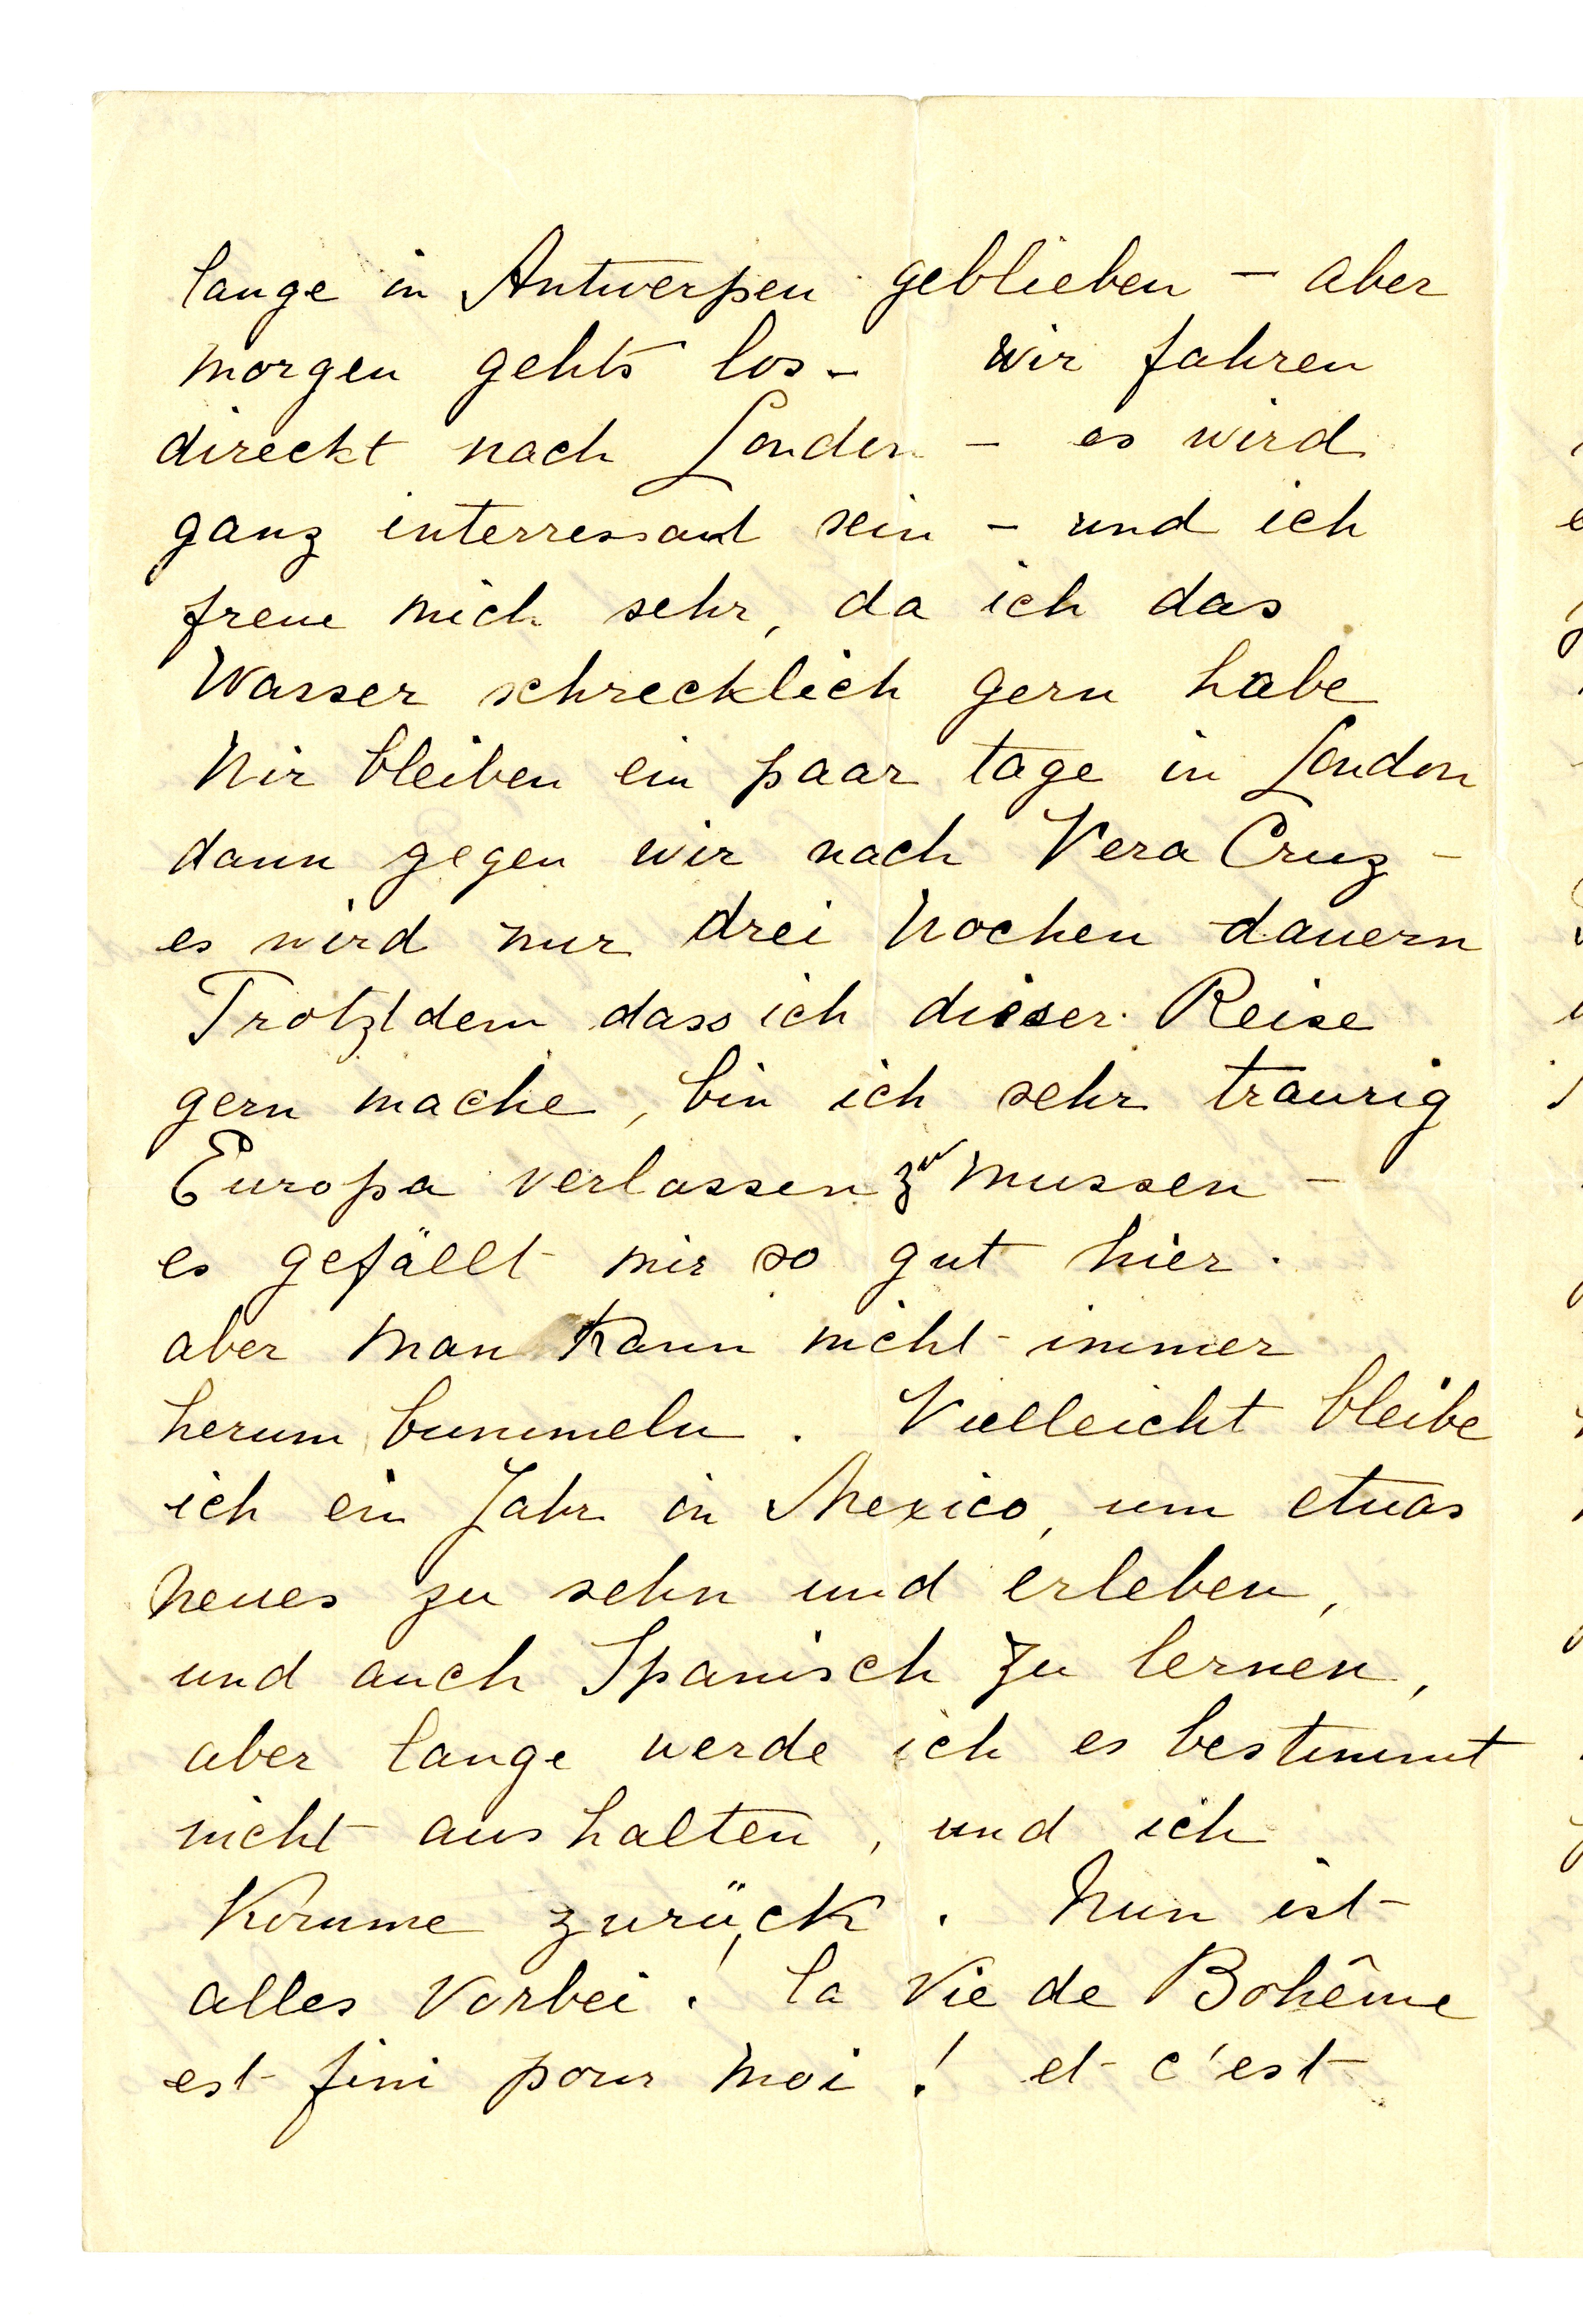 lange in Antwerpen geblieben – aber
morgen gehts los – wir fahren
direckt nach London – es wird
ganz interressant sein – und ich
freue mich sehr, da ich das
Wasser schrecklich gern habe
Wir bleiben ein paar tage in London
dann gegen wir nach Vera Cruz –
es wird nur drei Wochen dauern
Trotzdem dass ich dieser Reise
gern mache, bin ich sehr traurig
Europa verlassen zu mussen –
es gefällt mir so gut hier.
aber man kann nicht immer
herum bummeln. Vielleicht bleibe
ich ein Jahr in Mexico, um etwas
neues zu sehn und erleben,
und auch Spanisch zu lernen,
aber lange werde ich es bestimmt
nicht aushalten, und ich
komme zurück. Nun ist
alles vorbei! la Vie de Bohême
est fini pour moi! et c'est